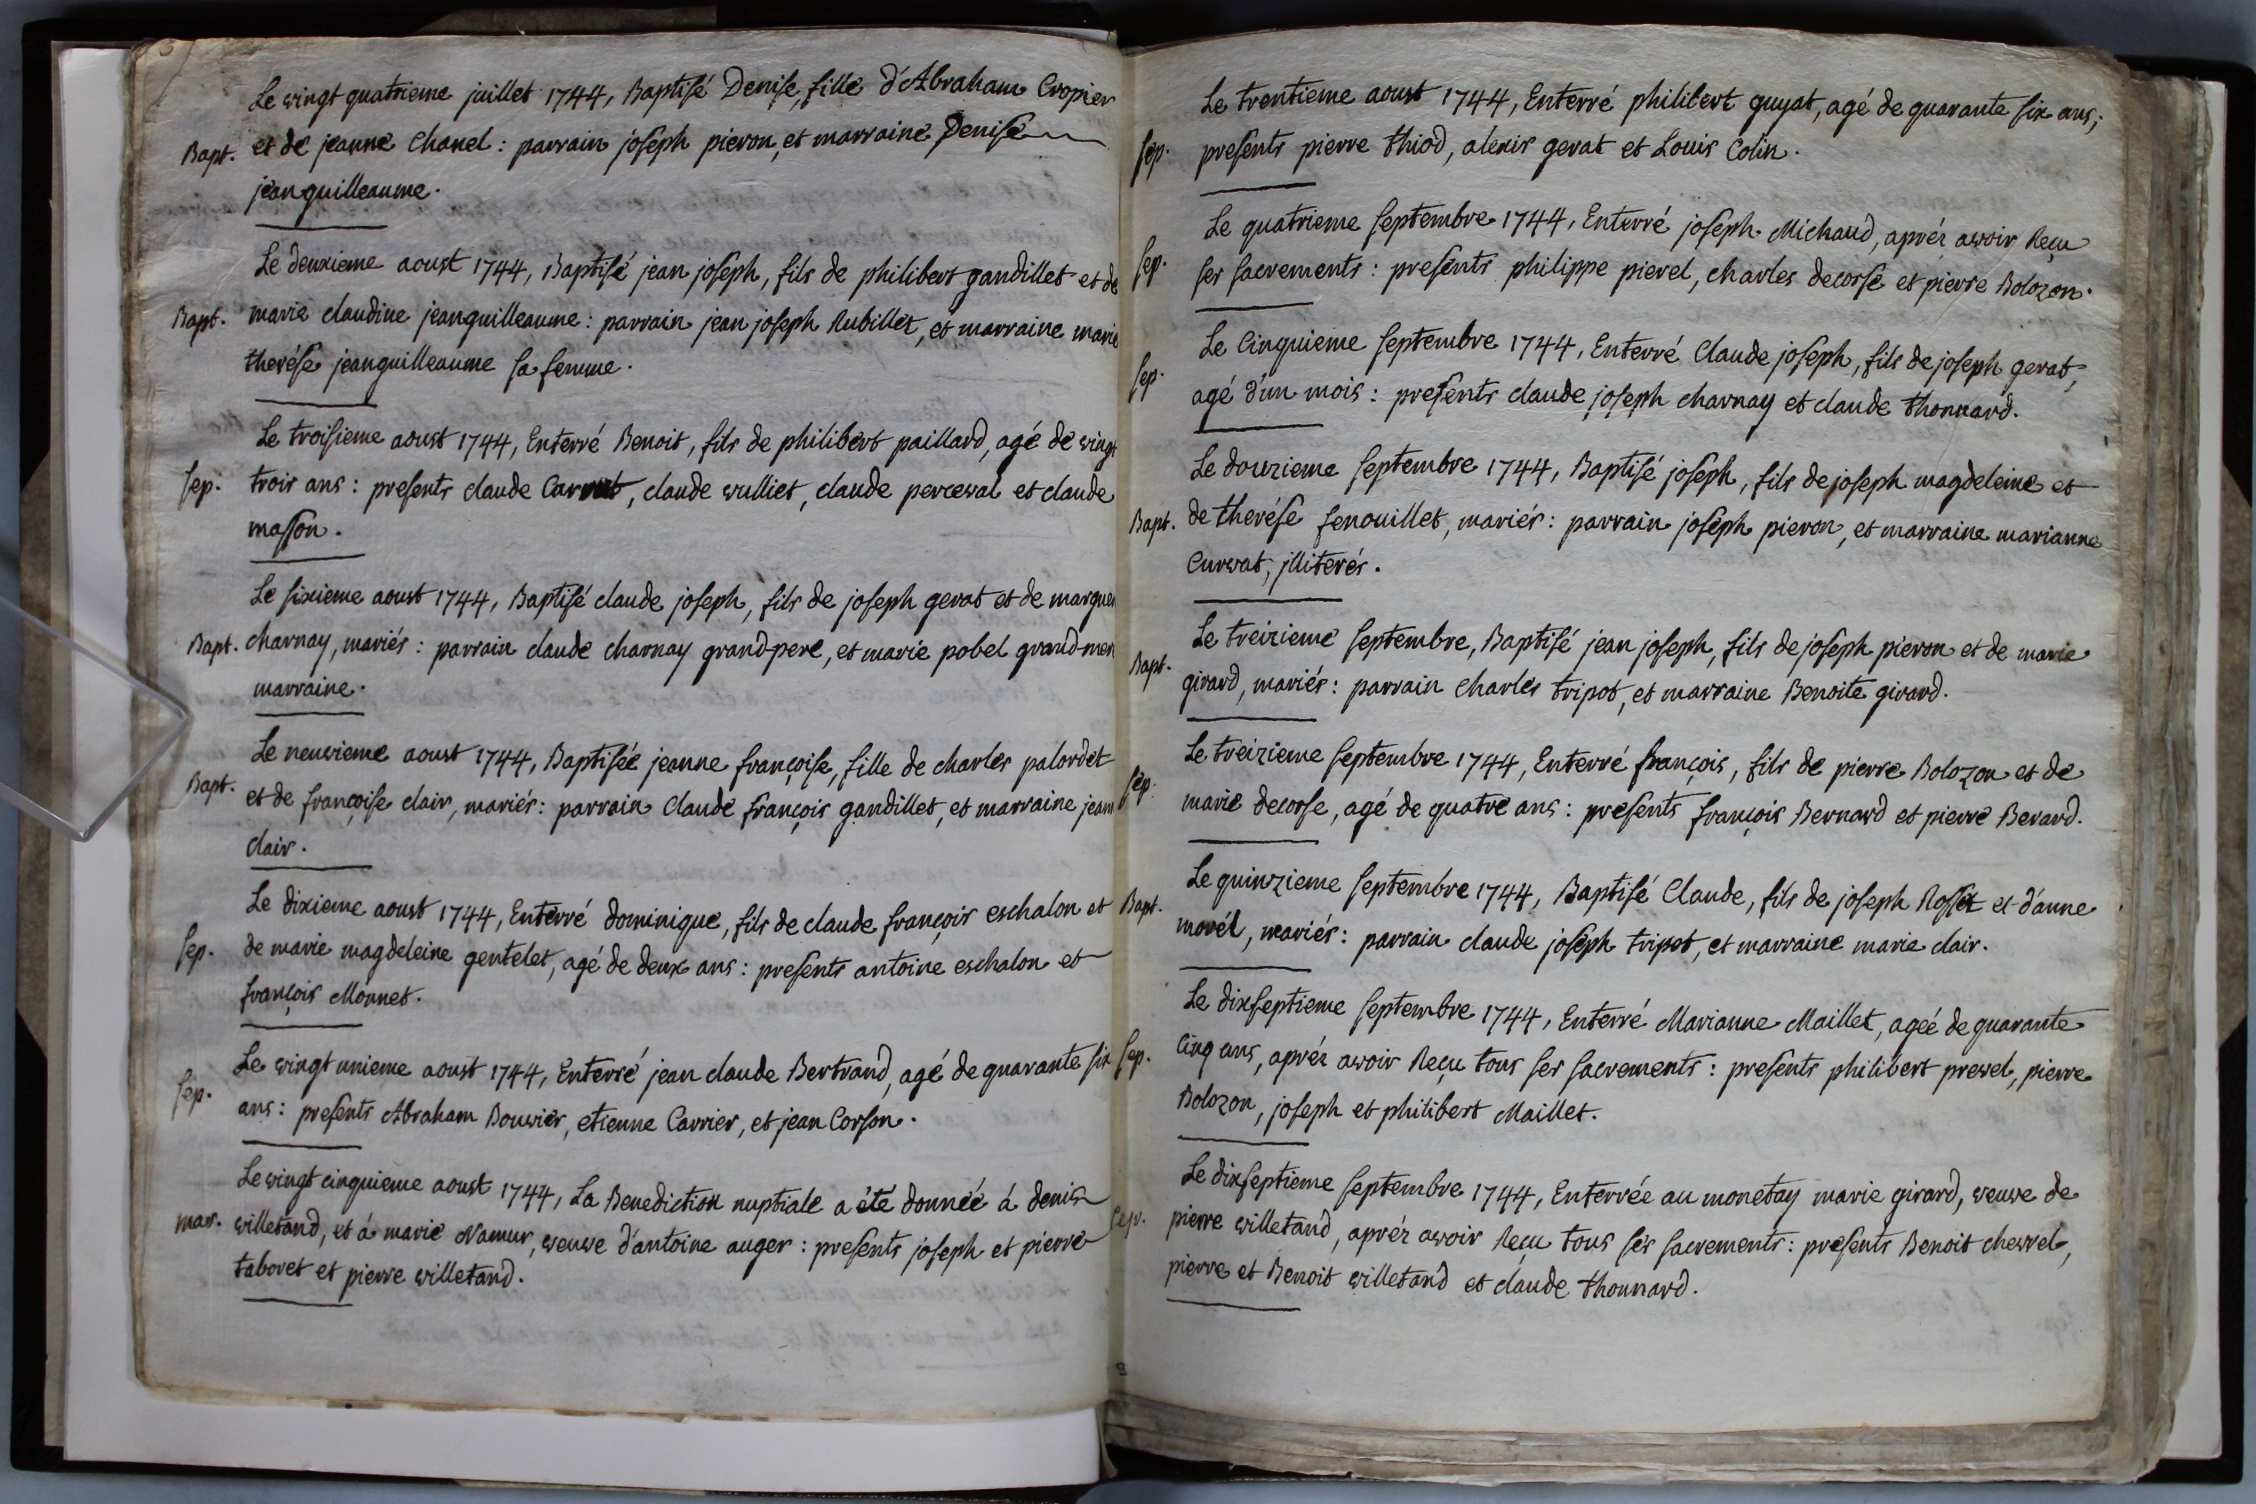 Le vingt quatrieme juillet 1744, Baptisé Denise, fille d'Abraham Cropier
Bapt. et de jeanne Chanel : parrain joseph pieron, et marraine Denise
jeanguilleaume.
Le deuxieme aoust 1744, Baptisé jean joseph, fils de philibert gandillet et de
Bapt. marie claudine jeanguilleaume : parrain jean joseph Rubillet, et marraine marie
therése jeanguilleaume sa femme.
Le troisieme aoust 1744, Enterré Benoit, fils de philibert paillard, agé de vingt
Sep. trois ans : presents claude, claude vulliet, claude perceval et claude
masson.
Le sixieme aoust 1744, Baptisé claude joseph, fils de joseph gerat et de margue
Bapt. charnay, mariés : parrain claude charnay grand-pere, et marie pobel grand-mer
marraine.
Le neuvieme aoust 1744, Baptisée jeanne françoise, fille de charles palordet
Bapt. et de françoise clair, mariés : parrain Claude françois gandillet, et marraine jeann
clair.
Le dixieme aoust 1744, Enterré dominique, fils de claude françois eschalon et
Sep. de marie magdeleine gentelet, agé de deux ans : presents antoine eschalon et
françois Monnet.
Le vingt unieme aoust 1744, Enterré jean claude Bertrand, agé de quarante six
Sep. ans : presents Abraham Bouvier, etienne Carrier, et jean Corson.
Le vingt cinquieme aoust 1744, La Benediction nuptiale a été donnéé á denis
mar. villetand, et á marie Namur, veuve d'antoine auger : presents joseph et pierre
taboret et pierre villetand.
Le trentieme aoust 1744, Enterré philibert guyat, agé de quarante six ans ;
Sep. presents pierre thiod, alexis gerat et Louis Colin.
Le quatrieme septembre 1744, Enterré joseph Michaud, aprés avoir Reçu
Sep. ses sacrements : presents philippe pierel, charles decorse et pierre Bolozon.
Le Cinquieme septembre 1744, Enterré Claude joseph, fils de joseph gerat,
Sep. agé d'un mois : presents claude joseph charnay et claude thonnard.
Le douzieme septembre 1744, Baptisé joseph, fils de joseph magdeleine et
Bapt. de therése fenouillet, mariés : parrain joseph pieron, et marraine marianne
Curvat, jlliterés.
Le treizieme septembre, Baptisé jean joseph, fils de joseph pieron et de marie
Bapt. girard, mariés : parrain charles tripot, et marraine Benoite girard.
Le treizieme septembre 1744, Enterré françois, fils de pierre Bolozon et de
Sep. marie decorse, agé de quatre ans : presents françois Bernard et pierre Berard.
Le quinzieme septembre 1744, Baptisé Claude, fils de joseph Rosset et d'anne
Bapt. morél, mariés : parrain claude joseph tripot, et marraine marie clair.
Le dixseptieme septembre 1744, Enterré Marianne Maillet, ageé de quarante
Sep. Cinq ans, aprés avoir Reçu tous ses sacrements : presents philibert prevel, pierre
Bolozon, joseph et philibert Maillet.
Le dixseptieme septembre 1744, Enterrée au monetay marie girard, veuve de
Sep. pierre villetand, aprés avoir Reçu tous ses sacrements : presents Benoit chevrel,
pierre et Benoit villetand et claude thonnard.